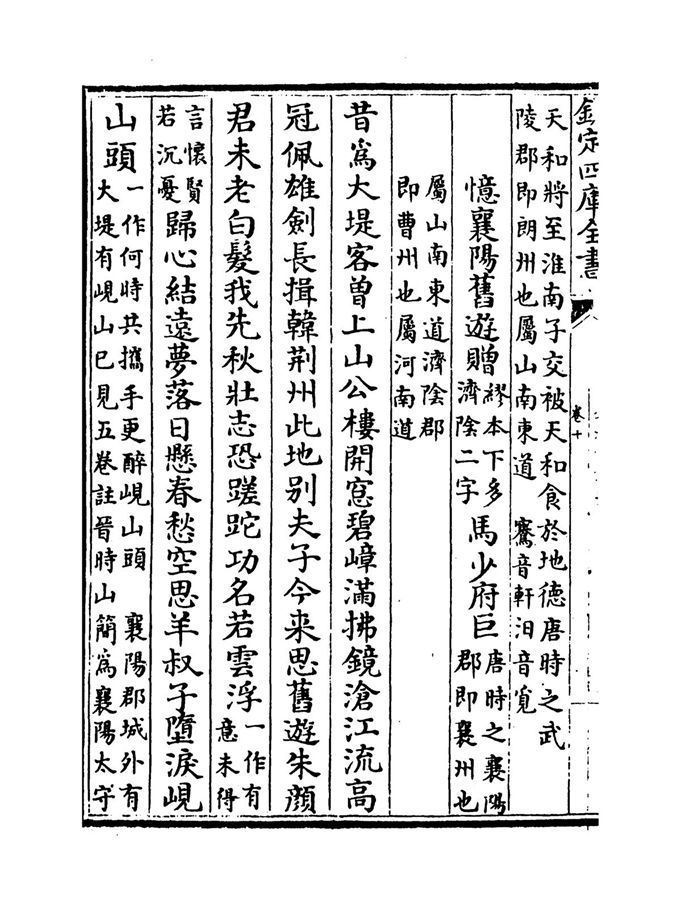 欽定四庫全書
卷十
天和將至淮南子交被天和食於地德唐時之武
陵郡即朗州也屬山南東道 騫音軒汨音覓
憶襄陽舊遊贈繆本下多濟陰二字馬少府巨唐時之襄陽郡即襄州也
屬山南東道濟陰郡
即曹州也屬河南道
昔為大堤客曾上山公樓開窓碧嶂滿拂鏡滄江流高
冠佩雄劍長揖韓荆州此地别夫子今来思舊遊朱顔
君未老白髮我先秋壯志恐蹉跎功名若雲浮一作有意未得
言懷賢若沉憂歸心結遠夢落日懸春愁空思羊叔子墮淚峴
山頭一作何時共攜手更醉峴山頭 襄陽郡城外有
大堤有峴山已見五卷註晉時山簡為襄陽太守